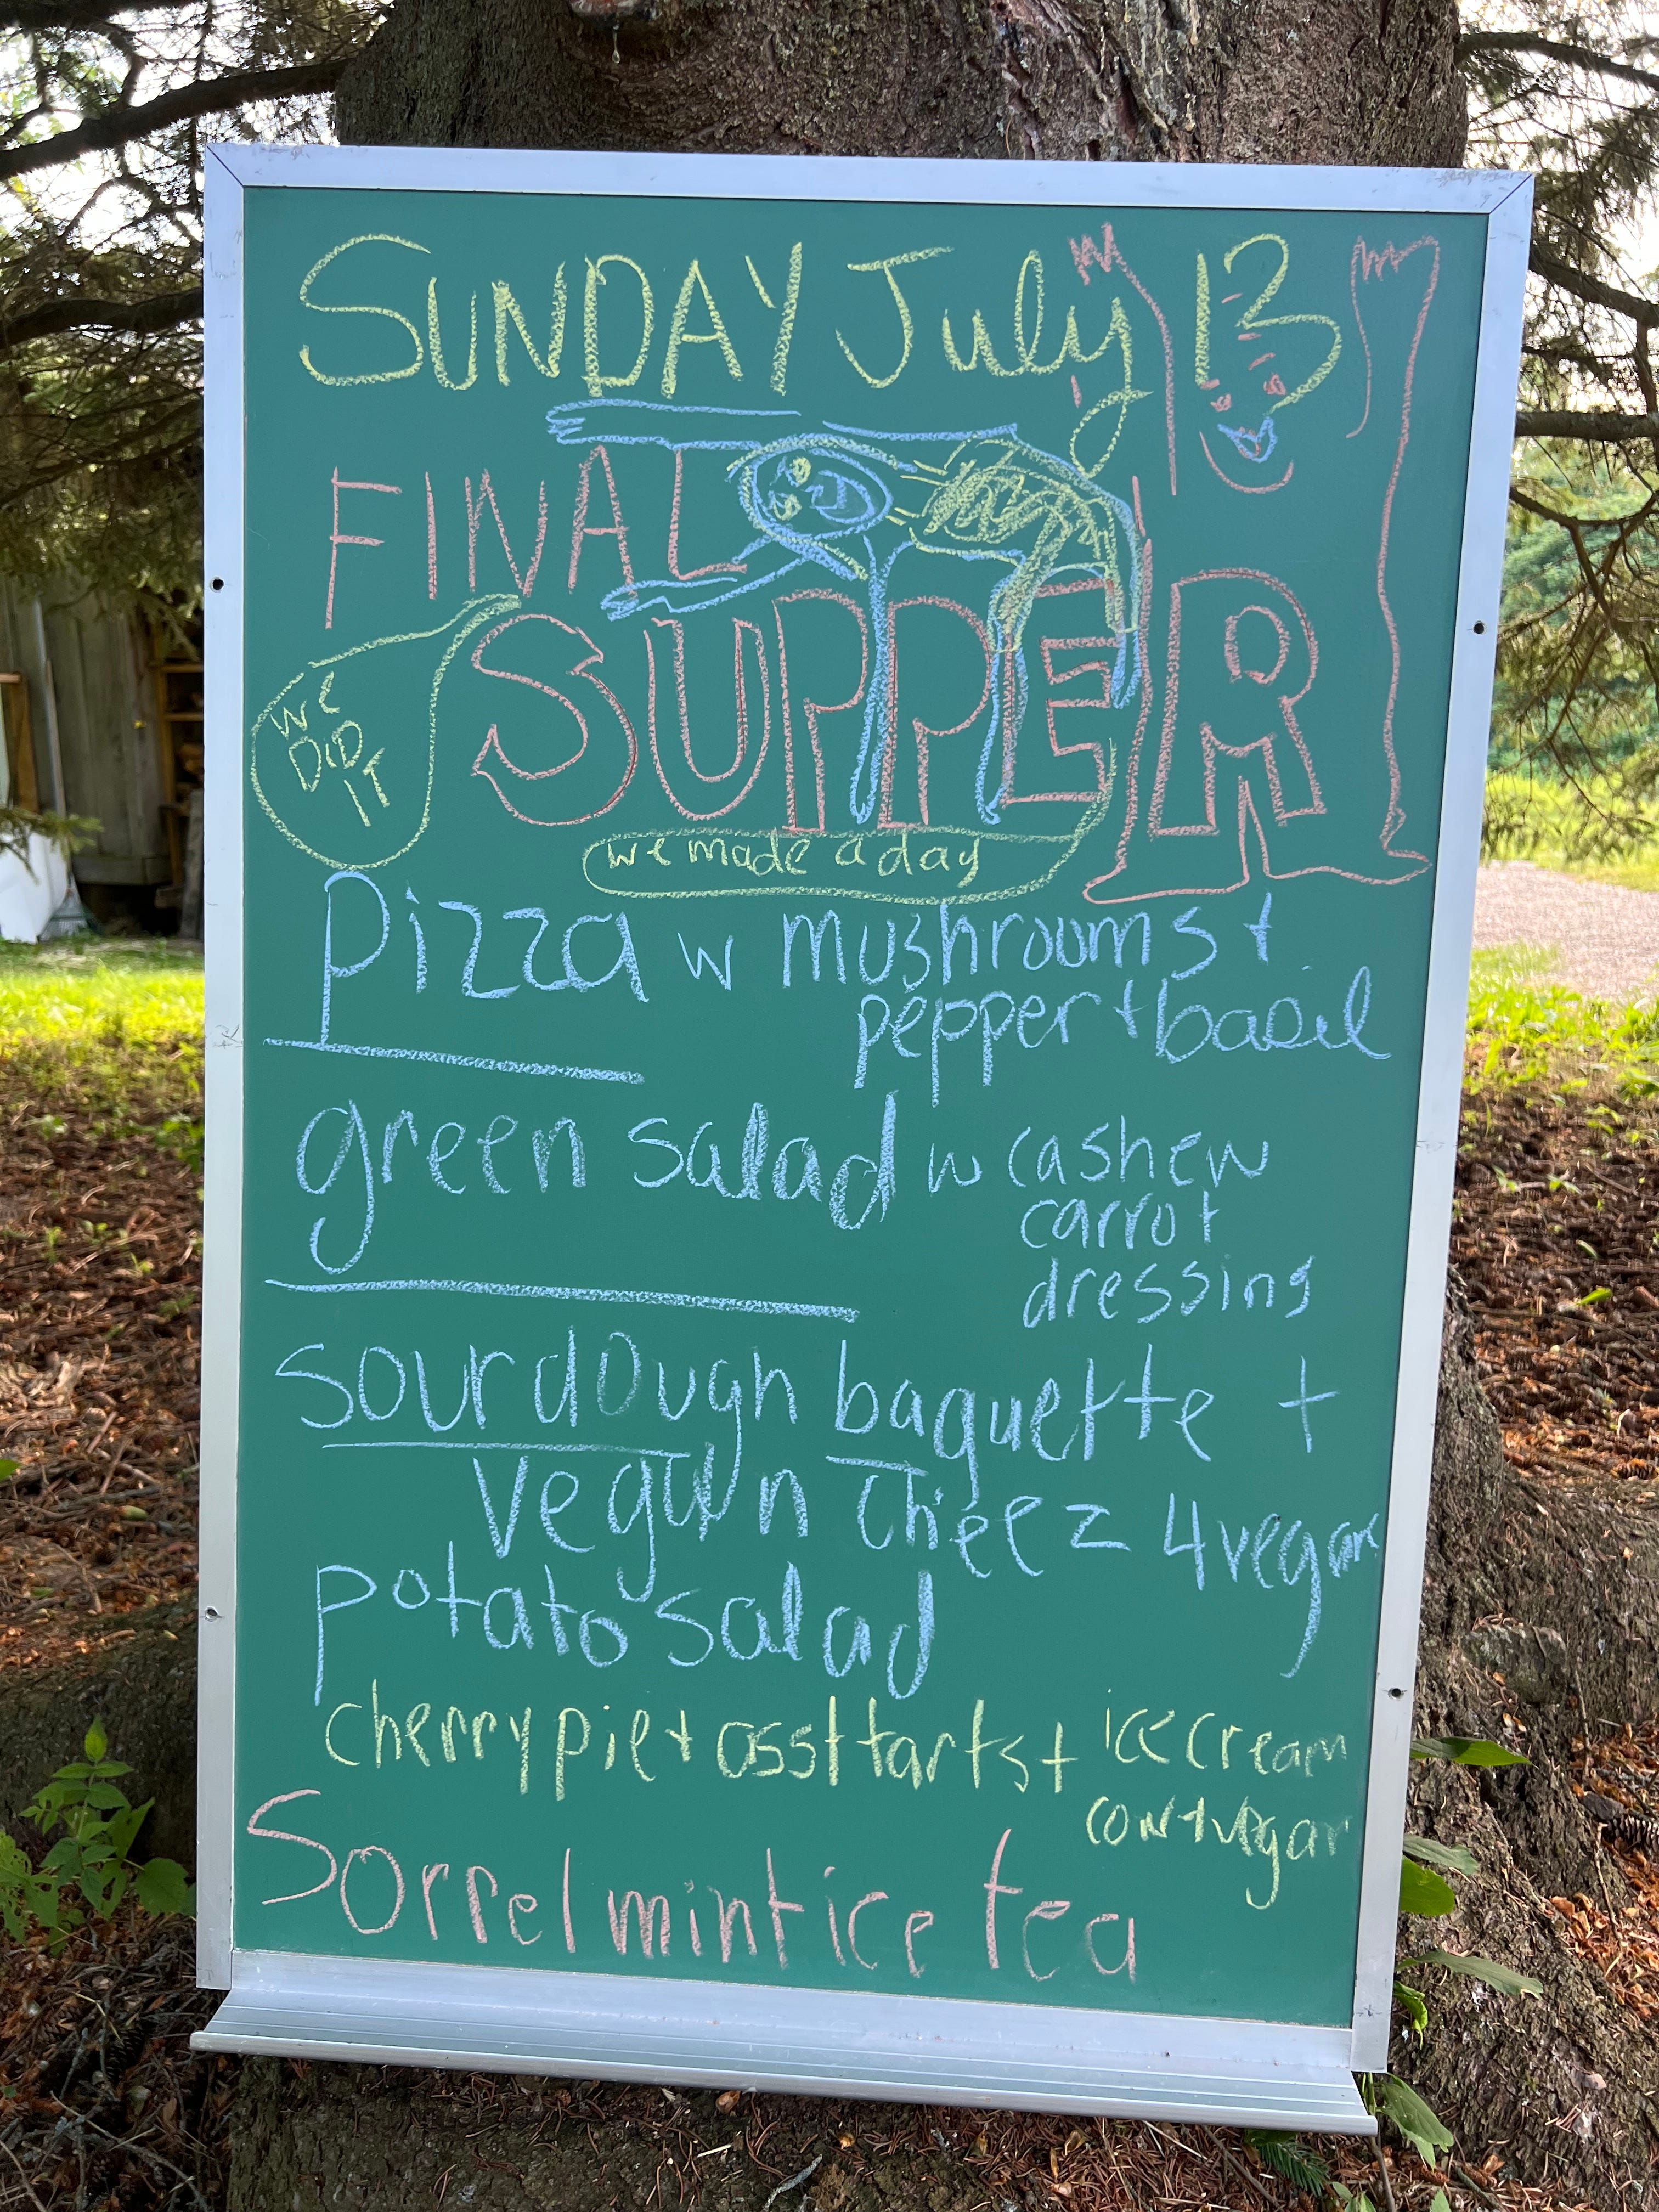 SUNDAY July 13
FINAL
SUPPER
we
DID
IT
we made a day
Pizza w mushrooms +
pepper + basil
green salad w cashew
carrot
dressing
sourdough baguette +
vegan cheez 4 vegan
potato salad
cherry pie + asst tarts + ice cream
cow + vegan
Sorrel mint ice tea